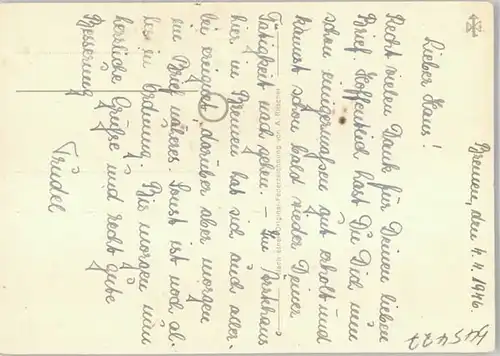 Bremen, den 4.4.1946.
Lieber Hans!
Recht vielen Dank für Deinen lieben
Brief. Hoffentlich hast Du Dich nun
schon einigermaßen gut erholt und
kannst schon bald wieder Deiner
Tätigkeit nach gehen. – Im
hier in Bremen hat sich auch aller-
lei ereignet, darüber aber morgen
im Brief näheres. Sonst ist noch al-
les in Ordnung. Bis morgen nun
herzliche Grüße und recht gute
Besserung
Trudel
445477